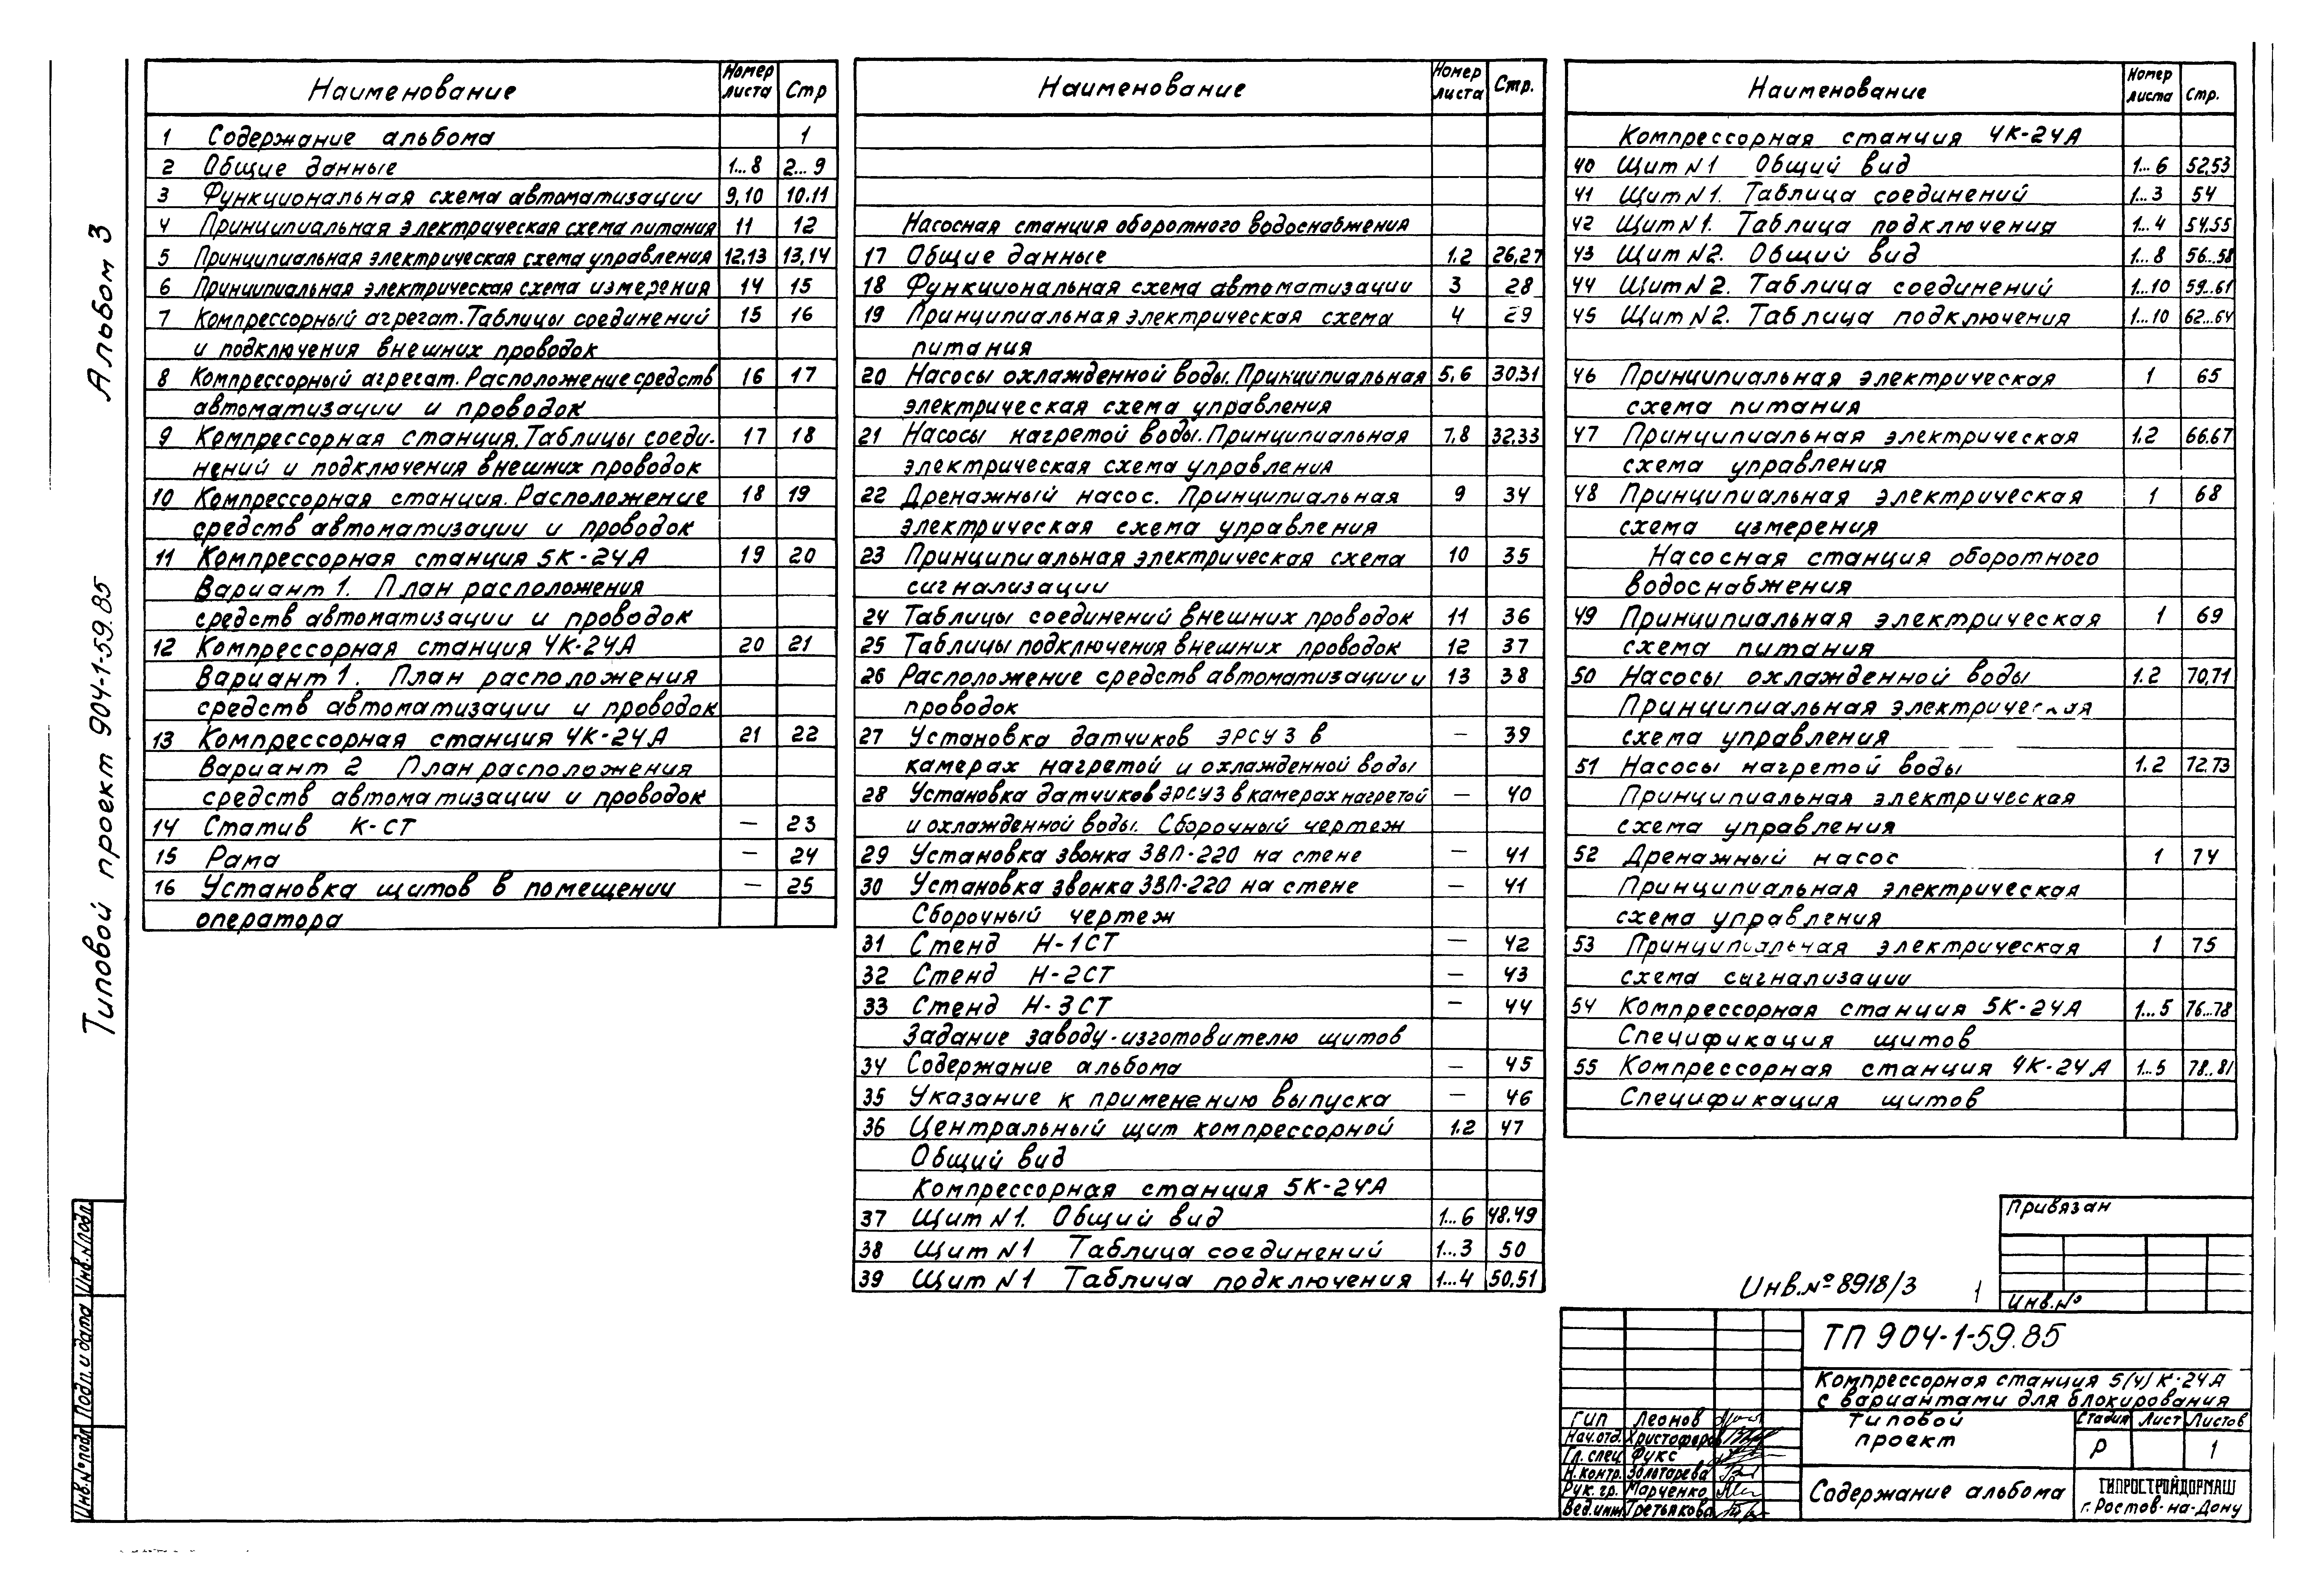 Альбом 3
Типовой проект 904-1-59.85
Наименование Номер листа Стр
1 Содержание альбома 1
2 Общие данные 1...8 2...9
3 Функциональная схема автоматизации 9,10 10.11
4 Принципиальная электрическая схема питания 11 12
5 Принципиальная электрическая схема управления 12.13 13,14
6 Принципиальная электрическая схема измерения 14 15
7 Компрессорный агрегат. Таблицы соединений 15 16
и подключения внешних проводок
8 Компрессорный агрегат. Расположение средств 16 17
автоматизации и проводок
9 Компрессорная станция. Таблицы соеди- 17 18
нений и подключения внешних проводок
10 Компрессорная станция. Расположение 18 19
средств автоматизации и проводок
11 Компрессорная станция 5К-24А 19 20
Вариант 1. План расположения
средств автоматизации и проводок
12 Компрессорная станция 4К-24А 20 21
Вариант 1. План расположения
средств автоматизации и проводок
13 Компрессорная станция 4К-24А 21 22
Вариант 2 План расположения
средств автоматизации и проводок
14 Статив К-СТ — 23
15 Рама — 24
16 Установка щитов в помещении — 25
оператора
Наименование Номер листа Стр.
Насосная станция оборотного водоснабжения
17 Общие данные 1.2 26,27
18 Функциональная схема автоматизации 3 28
19 Принципиальная электрическая схема 4 29
питания
20 Насосы охлажденной воды. Принципиальная 5,6 30.31
электрическая схема управления
21 Насосы нагретой воды. Принципиальная 7,8 32.33
электрическая схема управления
22 Дренажный насос. Принципиальная 9 34
электрическая схема управления
23 Принципиальная электрическая схема 10 35
сигнализации
24 Таблицы соединений внешних проводок 11 36
25 Таблицы подключения внешних проводок 12 37
26 Расположение средств автоматизации и 13 38
проводок
27 Установка датчиков ЭРСУ 3 в — 39
камерах нагретой и охлажденной воды
28 Установка датчиков ЭРСУЗ в камерах нагретой — 40
и охлажденной воды. Сборочный чертеж
29 Установка звонка ЗВП-220 на стене — 41
30 Установка звонка ЗВП-220 на стене — 41
Сборочный чертеж
31 Стенд Н-1СТ — 42
32 Стенд Н-2СТ — 43
33 Стенд Н-3СТ — 44
Задание заводу-изготовителю щитов
34 Содержание альбома — 45
35 Указание к применению выпуска — 46
36 Центральный щит компрессорной 1.2 47
Общий вид
Компрессорная станция 5К-24А
37 Щит N1. Общий вид 1...6 48.49
38 Щит N1 Таблица соединений 1...3 50
39 Щит N1 Таблица подключения 1...4 50,51
Наименование Номер листа Стр.
Компрессорная станция 4К-24А
40 Щит N1 Общий вид 1...6 52,53
41 Щит N1. Таблица соединений 1...3 54
42 Щит N1. Таблица подключения 1...4 54,55
43 Щит N2. Общий вид 1...8 56...58
44 Щит N2. Таблица соединений 1...10 59...61
45 Щит N2. Таблица подключения 1...10 62...64
46 Принципиальная электрическая 1 65
схема питания
47 Принципиальная электрическая 1.2 66.67
схема управления
48 Принципиальная электрическая 1 68
схема измерения
Насосная станция оборотного
водоснабжения
49 Принципиальная электрическая 1 69
схема питания
50 Насосы охлажденной воды 1.2 70,71
Принципиальная электрическая
схема управления
51 Насосы нагретой воды 1.2 72.73
Принципиальная электрическая
схема управления
52 Дренажный насос 1 74
Принципиальная электрическая
схема управления
53 Принципиальная электрическая 1 75
схема сигнализации
54 Компрессорная станция 5К-24А 1...5 76...78
Спецификация щитов
55 Компрессорная станция 4К-24А 1...5 78..81
Спецификация щитов
Привязан
Инв.№
Инв.№ 8918/3 1
ТП 904-1-59.85
Компрессорная станция 5(4)К-24А
с вариантами для блокирования
Типовой
проект
Стадия Лист Листов
Р 1
Содержание альбома
ГИПРОСТРОЙДОРМАШ
г. Ростов-на-Дону
ГИП Леонов
Нач.отд. Христофоров
Гл.спец Фукс
Н.контр. Золотарева
Рук.гр. Марченко
Вед.инж Третьякова
Инв.№подл Подп. и дата Инв.Nподл